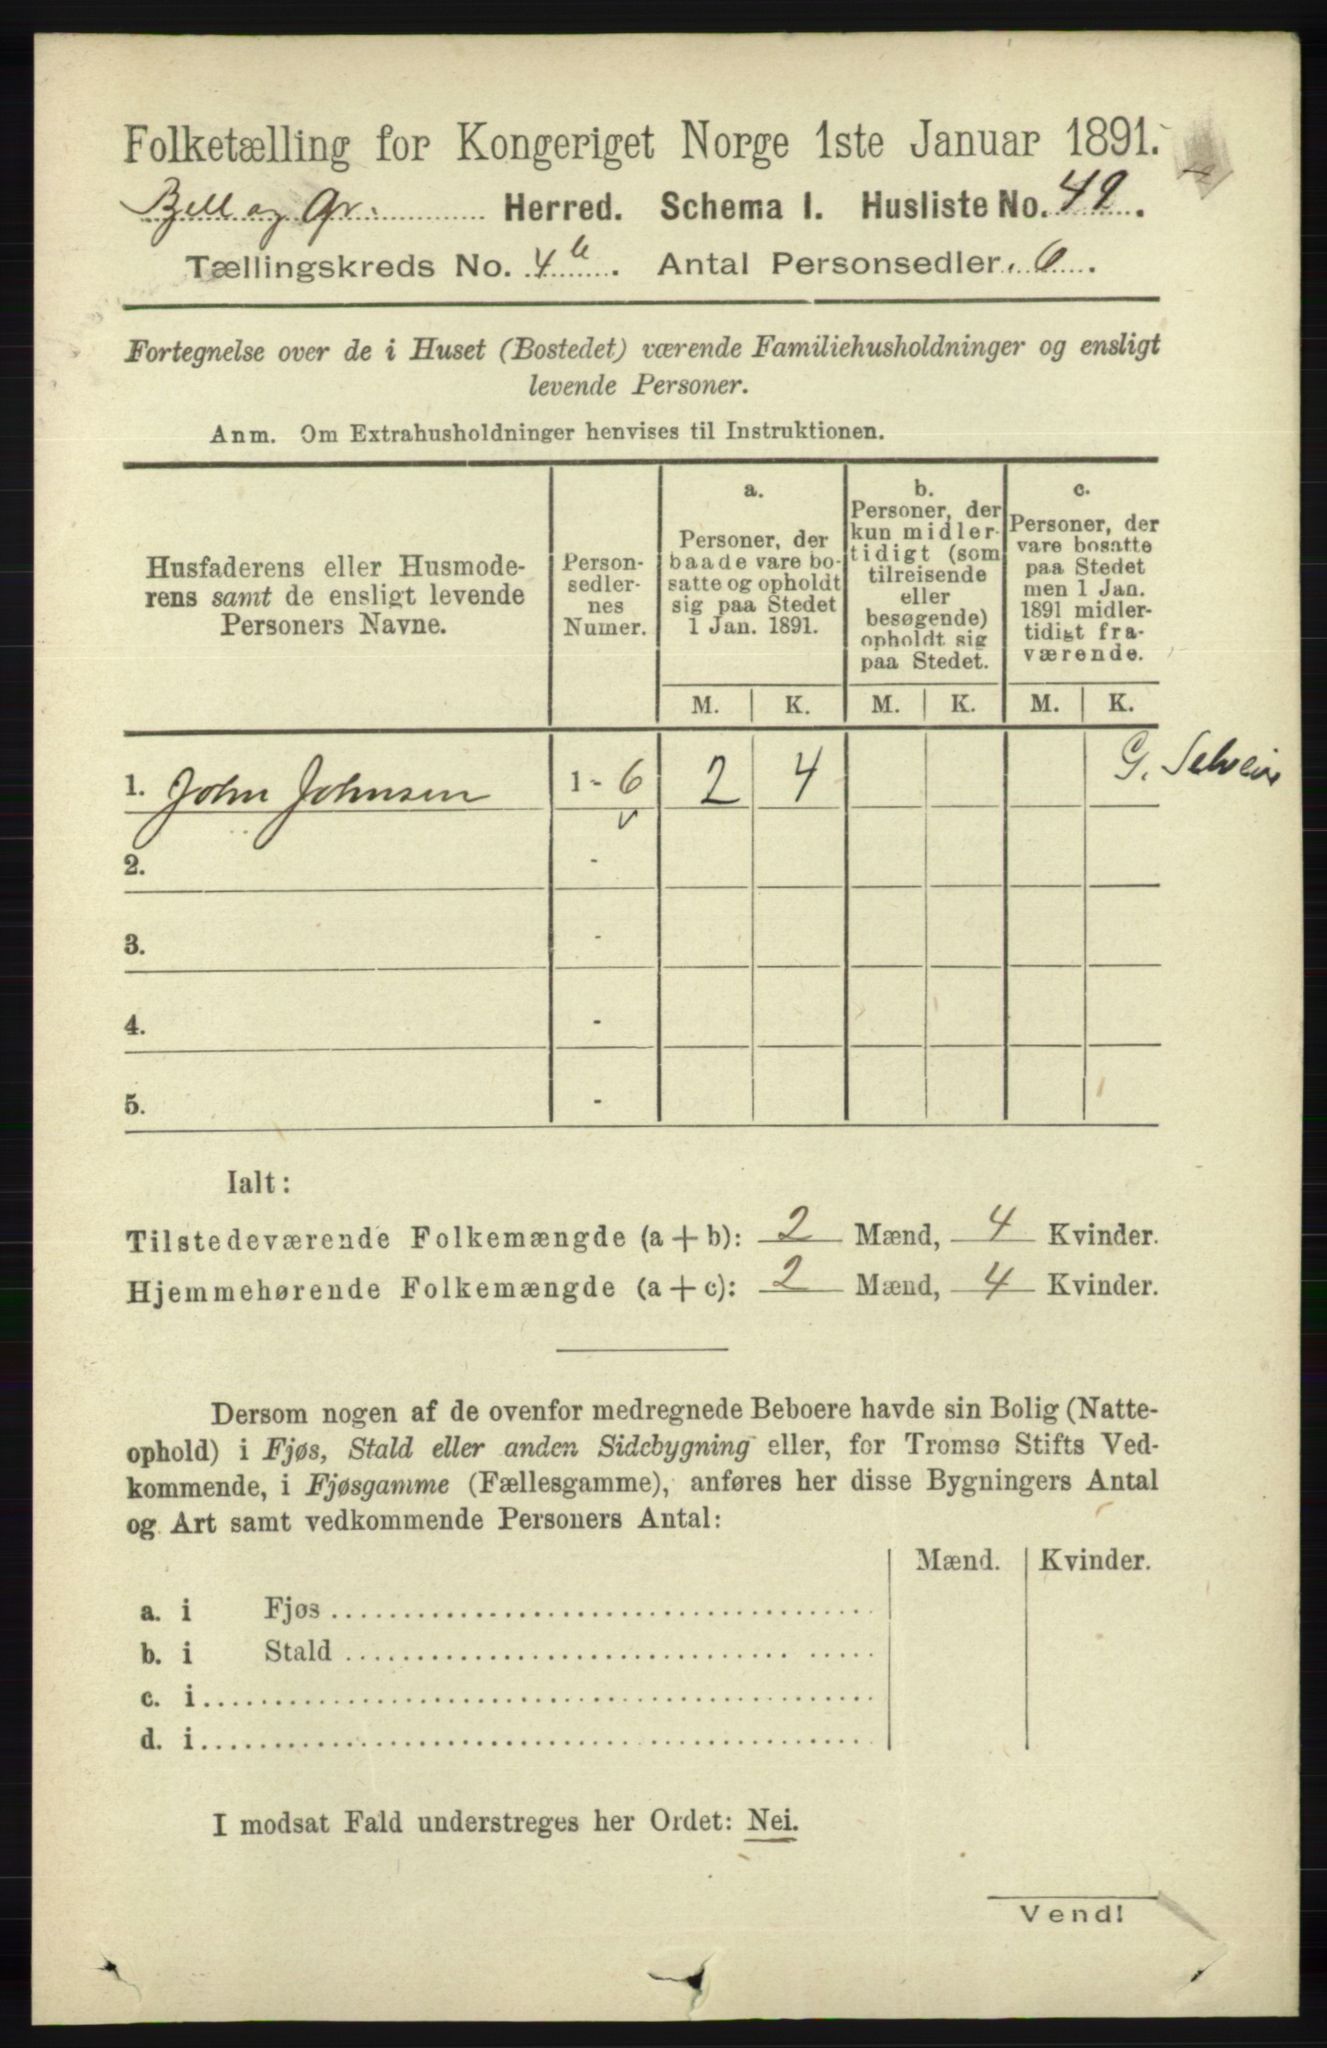 Folketælling for Kongeriget Norge 1ste Januar 1891.
Bell og Gr. Herred. Schema I. Husliste No. 42.
Tællingskreds No. 4 b. Antal Personsedler. 6.
Fortegnelse over de i Huset (Bostedet) værende Familiehusholdninger og ensligt
levende Personer.
Anm. Om Extrahusholdninger henvises til Instruktionen.
Husfaderens eller Husmode-
rens samt de ensligt levende
Personers Navne.
Person-
sedler-
nes
Numer.
a.
Personer, der
baade vare bo-
satte og opholdt
sig paa Stedet
1 Jan. 1891.
b.
Personer, der
kun midler-
tidigt (som
tilreisende
eller
besøgende)
opholdt sig
paa Stedet.
c.
Personer, der
vare bosatte
paa Stedet
men 1 Jan.
1891 midler-
tidigt fra-
værende.
M. K. M. K. M. K.
1. John Johnsen 1 - 6 2 4 G. Selveier
2. -
3. -
4. -
5. -
Ialt:
Tilstedeværende Folkemængde (a + b): 2 Mænd, 4 Kvinder.
Hjemmehørende Folkemængde (a + c): 2 Mænd, 4 Kvinder.
Dersom nogen af de ovenfor medregnede Beboere havde sin Bolig (Natte-
ophold) i Fjøs, Stald eller anden Sidebygning eller, for Tromsø Stifts Ved-
kommende, i Fjøsgamme (Fællesgamme), anføres her disse Bygningers Antal
og Art samt vedkommende Personers Antal:
Mænd. Kvinder.
a. i Fjøs
b. i Stald
c. i
d. i
I modsat Fald understreges her Ordet: Nei.
Vend!